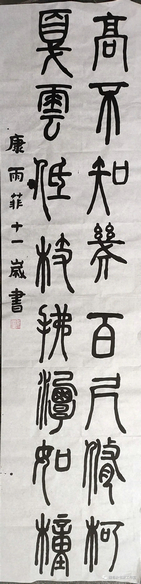 高不知幾百尺修柯
戛雲低枝拂潭如橦
康雨菲十一歲書